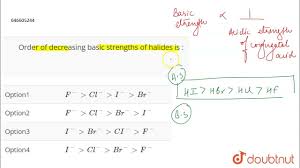 646605244
Order of decreasing basic strengths of halides is :
Option1 F⁻ > Cl⁻ > I⁻ > Br⁻
Option2 F⁻ > Cl⁻ > Br⁻ > I⁻
Option3 I⁻ > Br⁻ > Cl⁻ > F⁻
Option4 I⁻ > Cl⁻ > Br⁻ > F⁻
Basic strength ∝ 1
Acidic strength of conjugate acid
A.S
HI > HBr > HCl > HF
B.S
doubtnut